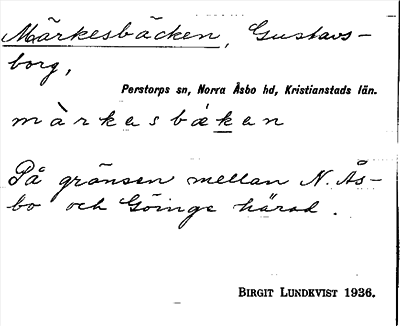 Märkesbäcken, Gustavs-
borg,
Perstorps sn, Norra Åsbo hd, Kristianstads län.
màrkesbáken
På gränsen mellan N. Ås-
bo och Göinge härad.
BIRGIT LUNDKVIST 1936.